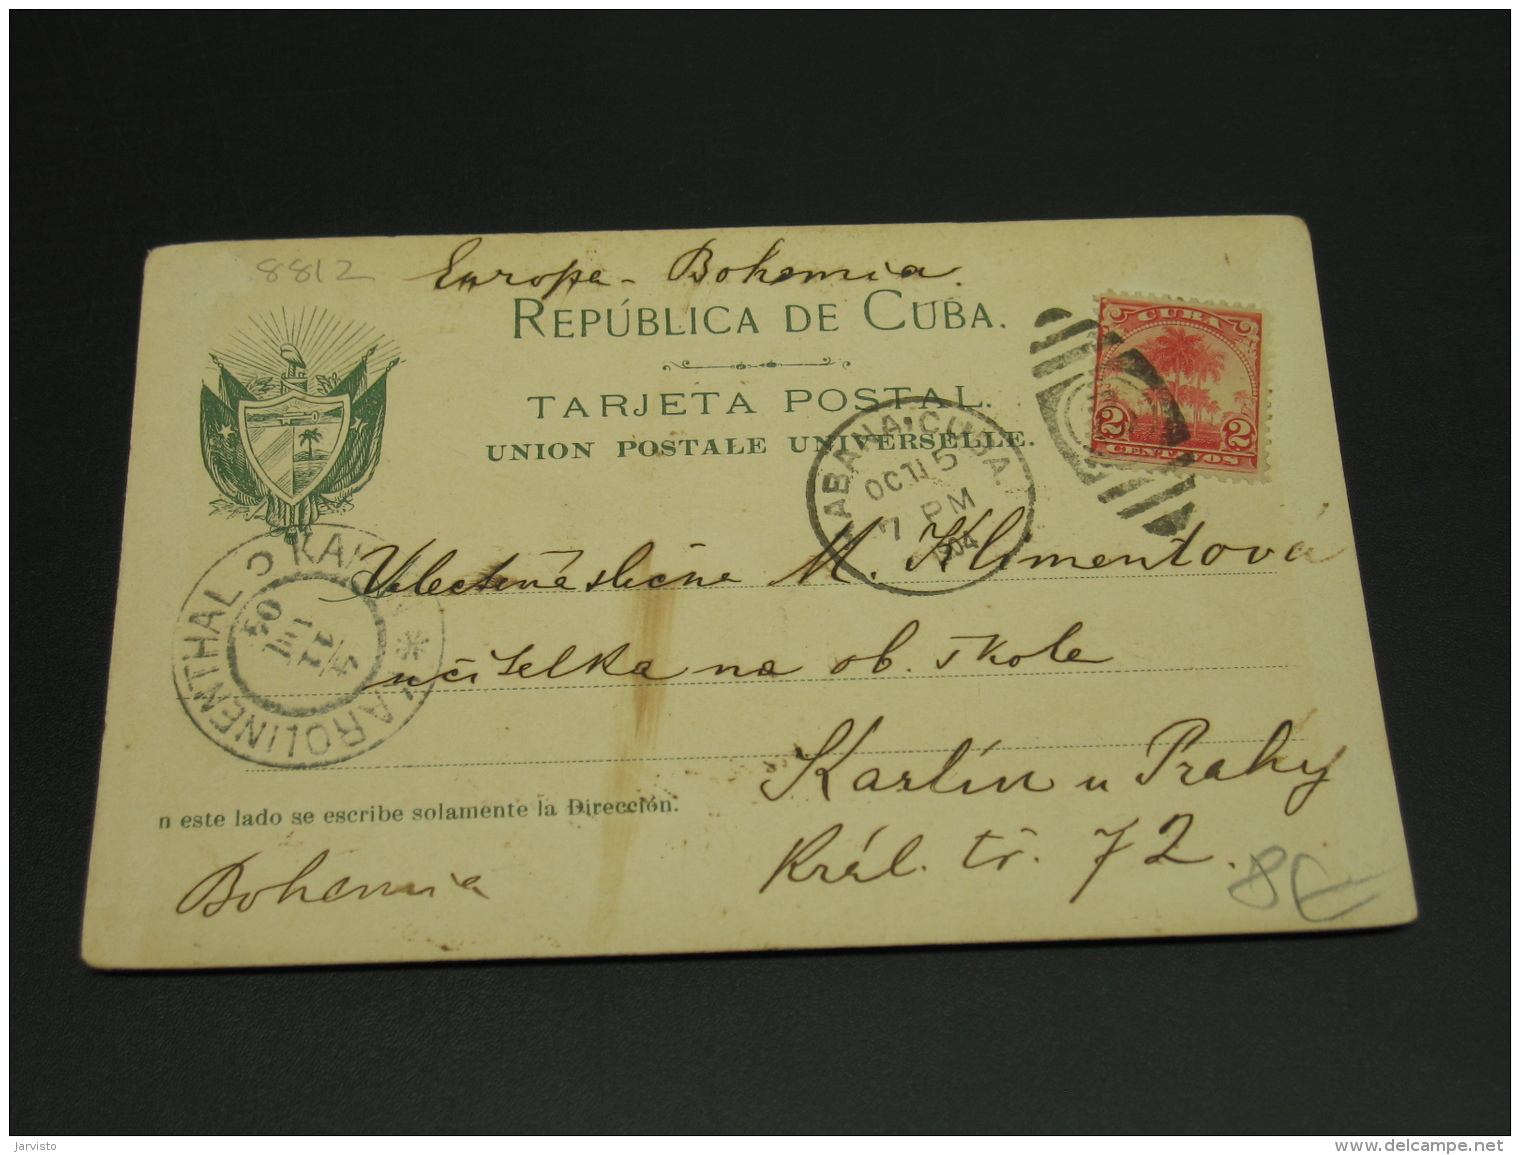 8812
Europa - Bohemia.
REPÚBLICA DE CUBA.
TARJETA POSTAL.
UNION POSTALE UNIVERSELLE.
CUBA
2 2
CENTAVOS
HABANA, CUBA.
OCT 15
7 PM
1904
KAROLINENTHAL
4/11
Velectěná slečna M. Klimentová
učitelka na ob. škole
Karlín u Prahy
Král. tř. 72.
n este lado se escribe solamente la Dirección.
Bohemia
8€
jarvisto
www.delcampe.net